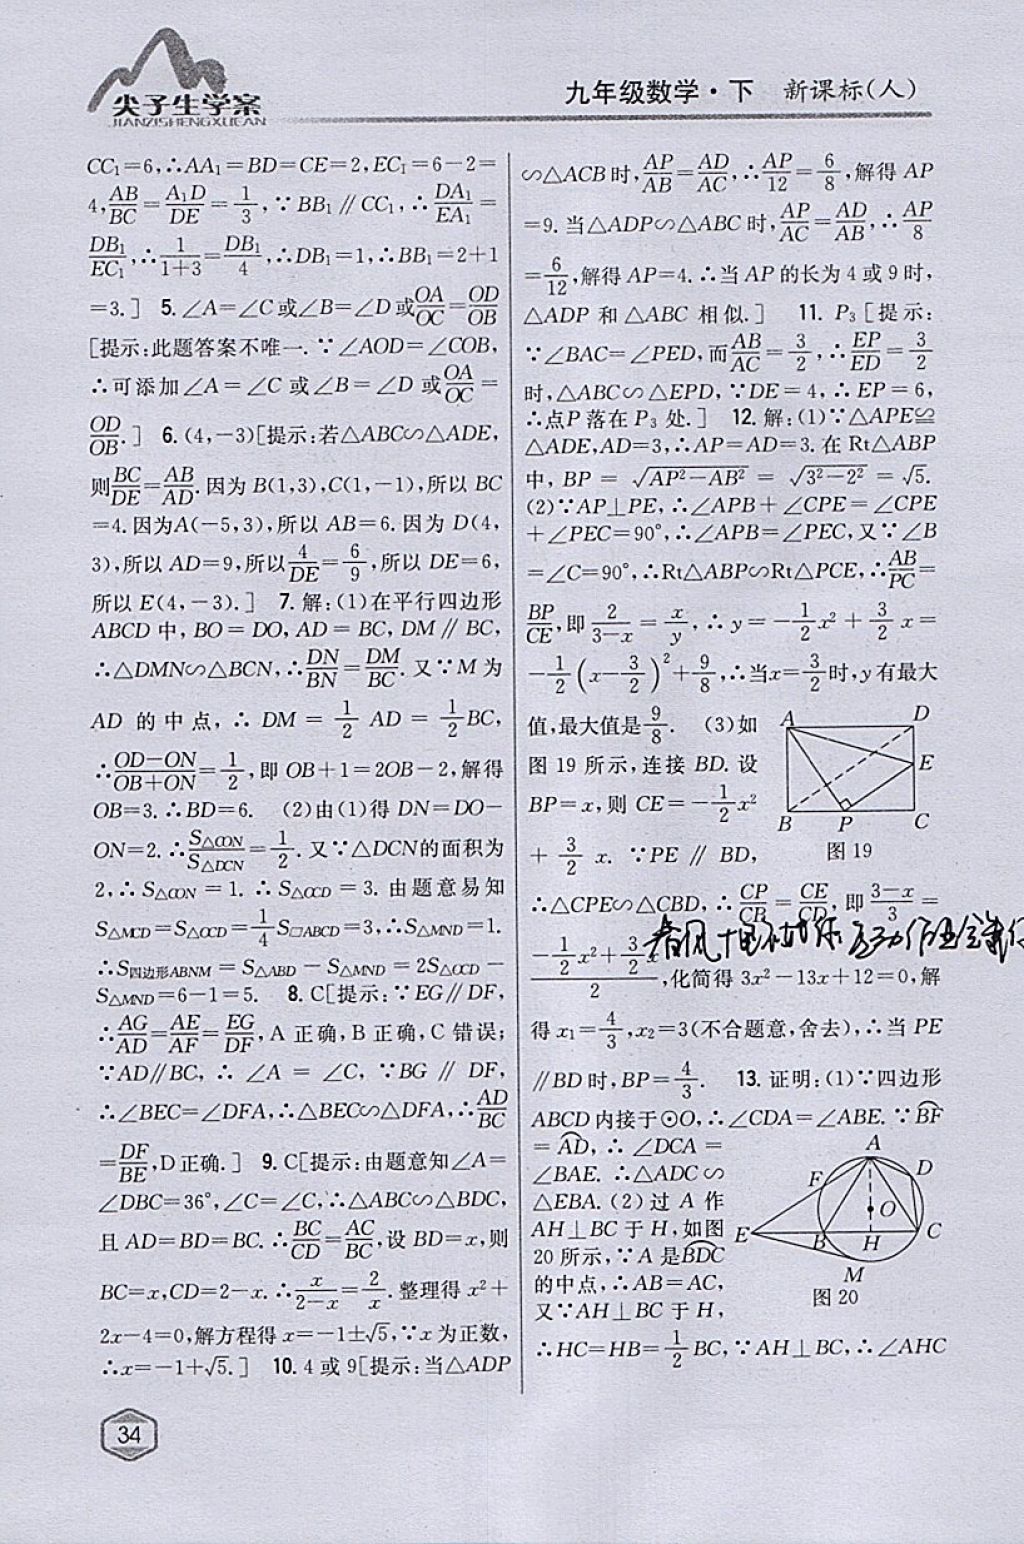 尖子生学案
JIANZISHENGXUEAN
九年级数学·下 新课标(人)
CC₁=6,∴AA₁=BD=CE=2,EC₁=6-2=
4,AB/BC=A₁D/DE=1/3,∵BB₁∥CC₁,∴DA₁/EA₁=
DB₁/EC₁,∴1/(1+3)=DB₁/4,∴DB₁=1,∴BB₁=2+1
=3.] 5.∠A=∠C或∠B=∠D或OA/OC=OD/OB
[提示:此题答案不唯一.∵∠AOD=∠COB,
∴可添加∠A=∠C或∠B=∠D或OA/OC=
OD/OB.] 6.(4,-3)[提示:若△ABC∽△ADE,
则BC/DE=AB/AD.因为B(1,3),C(1,-1),所以BC
=4.因为A(-5,3),所以AB=6.因为D(4,
3),所以AD=9,所以4/DE=6/9,所以DE=6,
所以E(4,-3).] 7.解:(1)在平行四边形
ABCD中,BO=DO,AD=BC,DM∥BC,
∴△DMN∽△BCN,∴DN/BN=DM/BC.又∵M为
AD的中点,∴DM=1/2AD=1/2BC,
∴(OD-ON)/(OB+ON)=1/2,即OB+1=2OB-2,解得
OB=3.∴BD=6. (2)由(1)得DN=DO-
ON=2.∴S△CON/S△DCN=1/2.又∵△DCN的面积为
2,∴S△CON=1.∴S△OCD=3.由题意易知
S△MCD=S△OCD=1/4S□ABCD=3,∴S△MND=1.
∴S四边形ABNM=S△ABD-S△MND=2S△OCD-
S△MND=6-1=5. 8.C[提示:∵EG∥DF,
∴AG/AD=AE/AF=EG/DF,A正确,B正确,C错误;
∵AD∥BC,∴∠A=∠C,∵BG∥DF,
∴∠BEC=∠DFA,∴△BEC∽△DFA,∴AD/BC
=DF/BE,D正确.] 9.C[提示:由题意知∠A=
∠DBC=36°,∠C=∠C,∴△ABC∽△BDC,
且AD=BD=BC.∴BC/CD=AC/BC,设BD=x,则
BC=x,CD=2-x.∴x/(2-x)=2/x.整理得x²+
2x-4=0,解方程得x=-1±√5,∵x为正数,
∴x=-1+√5.] 10.4或9[提示:当△ADP
∽△ACB时,AP/AB=AD/AC,∴AP/12=6/8,解得AP
=9.当△ADP∽△ABC时,AP/AC=AD/AB,∴AP/8
=6/12,解得AP=4.∴当AP的长为4或9时,
△ADP和△ABC相似.] 11.P₃[提示:
∵∠BAC=∠PED,而AB/AC=3/2,∴EP/ED=3/2
时,△ABC∽△EPD,∵DE=4,∴EP=6,
∴点P落在P₃处.] 12.解:(1)∵△APE≌
△ADE,AD=3,∴AP=AD=3.在Rt△ABP
中,BP=√(AP²-AB²)=√(3²-2²)=√5.
(2)∵AP⊥PE,∴∠APB+∠CPE=∠CPE
+∠PEC=90°,∴∠APB=∠PEC,又∵∠B
=∠C=90°,∴Rt△ABP∽Rt△PCE,∴AB/PC=
BP/CE,即2/(3-x)=x/y,∴y=-1/2x²+3/2x=
-1/2(x-3/2)²+9/8,∴当x=3/2时,y有最大
值,最大值是9/8. (3)如
图19所示,连接BD.设
BP=x,则CE=-1/2x²
+3/2x.∵PE∥BD,
A D E B P C
图19
∴△CPE∽△CBD,∴CP/CB=CE/CD,即(3-x)/3=
(-1/2x²+3/2x)/2,化简得3x²-13x+12=0,解
得x₁=4/3,x₂=3(不合题意,舍去),∴当PE
∥BD时,BP=4/3. 13.证明:(1)∵四边形
ABCD内接于⊙O,∴∠CDA=∠ABE.∵BF
=AD,∴∠DCA=
∠BAE.∴△ADC∽
△EBA.(2)过A作
AH⊥BC于H,如图
20所示,∵A是BDC
的中点,∴AB=AC,
又∵AH⊥BC于H,
A F D O E B H C M
图20
∴HC=HB=1/2BC,∵AH⊥BC,∴∠AHC
34